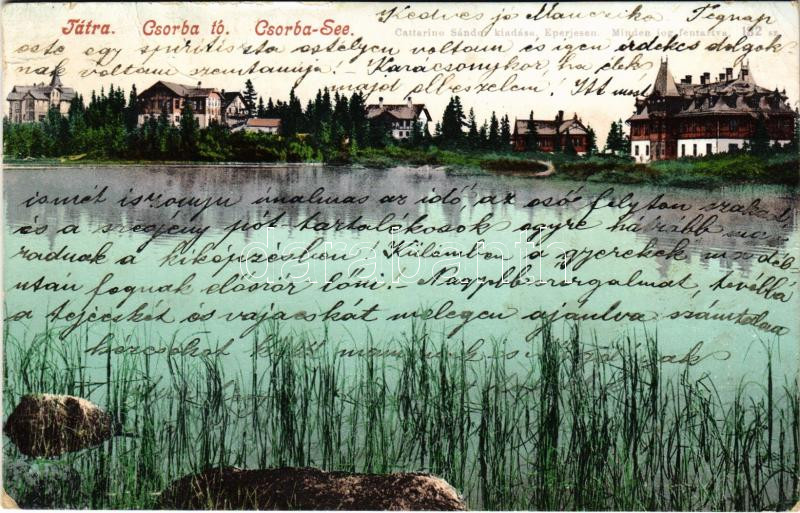 Tátra. Csorba tó. Csorba-See.
Cattarino Sándor kiadása, Eperjesen. Minden jog fentartva. 162 sz.
Kedves jó Manczika! Tegnap
este egy spiritiszta estélyen voltam és igen érdekes dolgok-
nak voltam szemtanúja! Karácsonykor ha élek
majd elbeszélem! Itt most
ismét iszonyu unalmas az idő, az eső folyton szakad
és a szegény pót-tartalékosok egyre hátrább ma-
radnak a kiképzésben! Különben a gyerekek ma dél-
után fognak először lőni! Nagyobb szorgalmat, továbbá
a tejecskét és vajacskát melegen ajánlva számtalan
kézcsókot
darabanth